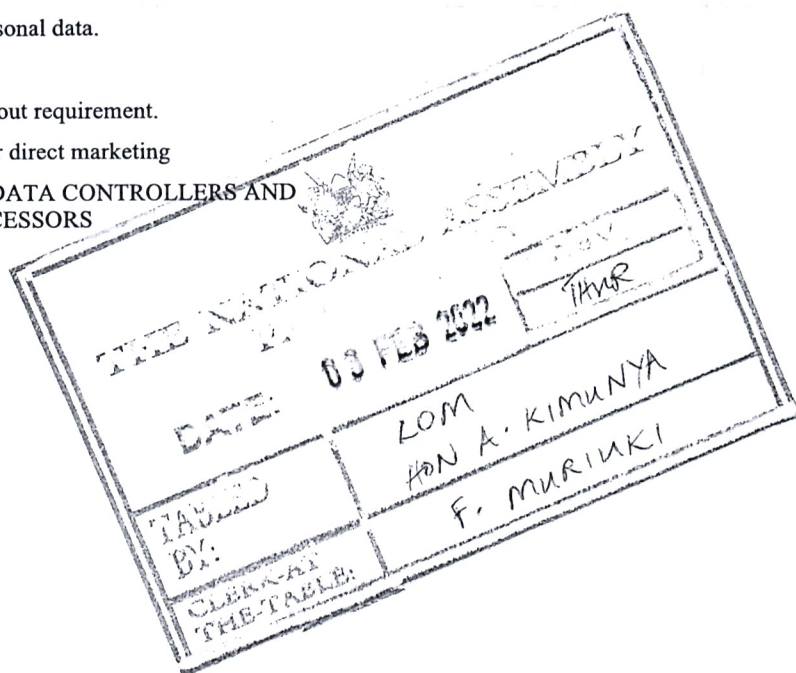 sonal data.
out requirement.
r direct marketing
DATA CONTROLLERS AND
CESSORS
THE NATIONAL ASSEMBLY
DATE: 03 FEB 2022
DAY.
THUR
TABLED
BY:
LOM
HON A. KIMUNYA
CLERK-AT
THE-TABLE:
F. MURIUKI